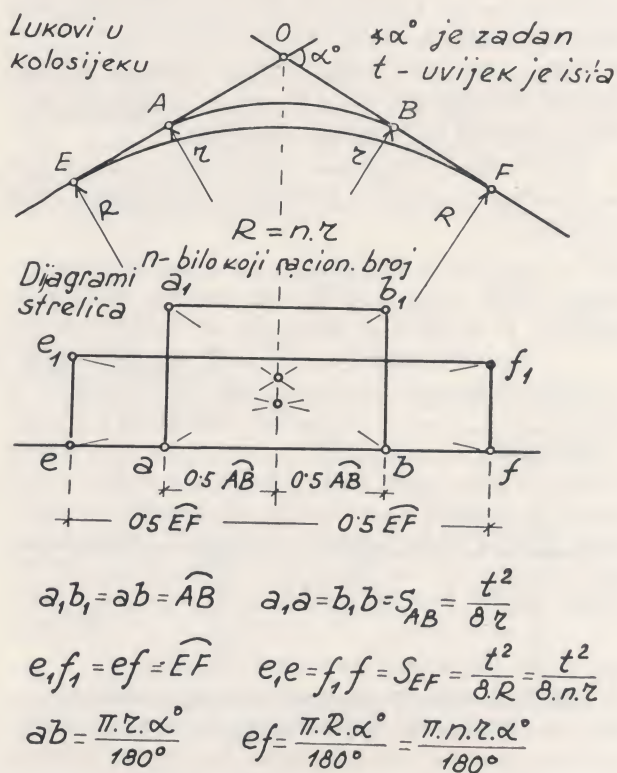 Lukovi u
kolosijeku
O
α°
∢α° je zadan
t - uvijek je ista
A
B
E
r
r
F
R
R
R = n.r
n- bilo koji racion. broj
Dijagrami
strelica
a₁
b₁
e₁
f₁
e
a
b
f
0.5 A͡B
0.5 A͡B
0.5 E͡F
0.5 E͡F
a₁b₁ = ab = A͡B
a₁a = b₁b = S_AB = t²/8.r
e₁f₁ = ef = E͡F
e₁e = f₁f = S_EF = t²/8.R = t²/8.n.r
ab = π.r.α°/180°
ef = π.R.α°/180° = π.n.r.α°/180°